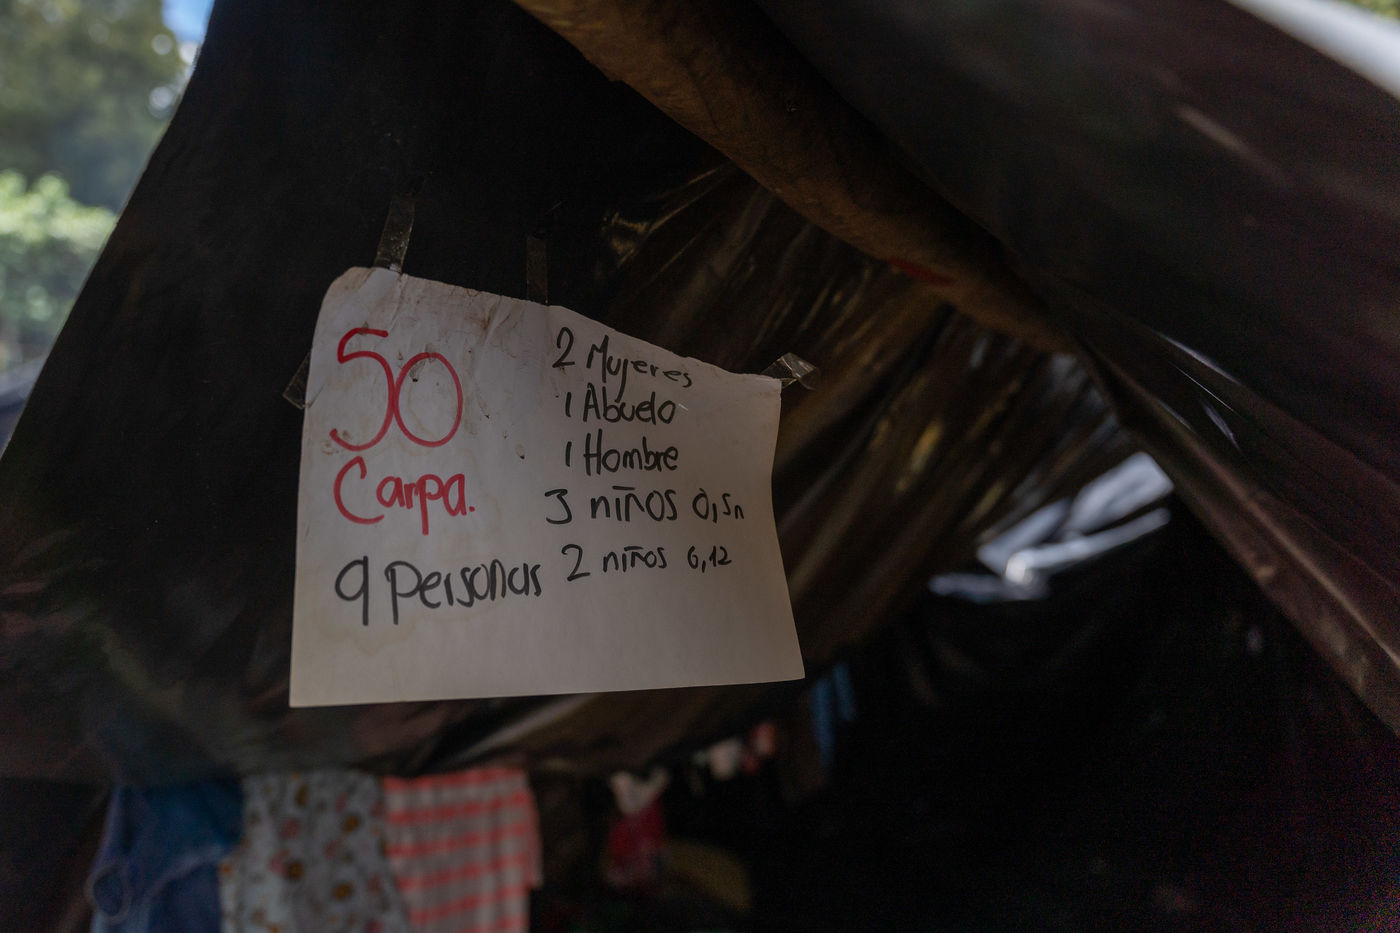 50
Carpa.
9 Personas
2 Mujeres
1 Abuelo
1 Hombre
3 niños 0,5n
2 niños 6,12